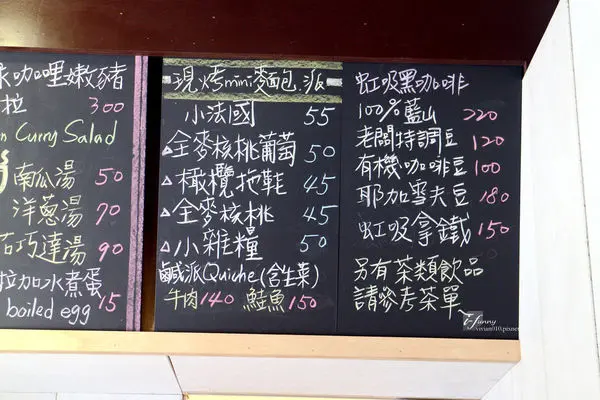 咖哩嫩豬
拉 300
Curry Salad
南瓜湯 50
洋蔥湯 70
茄巧達湯 90
拉加水煮蛋
boiled egg 15
現烤mini麵包.派
小法國 55
▵全麥核桃葡萄 50
▵橄欖拖鞋 45
▵全麥核桃 45
▵小雜糧 50
鹹派Quiche(含生菜)
牛肉140 鮭魚150
虹吸黑咖啡
100%藍山 220
老闆特調豆 120
有機咖啡豆 100
耶加雪夫豆 180
虹吸拿鐵 150
另有茶類飲品
請參考茶單
i-Funny